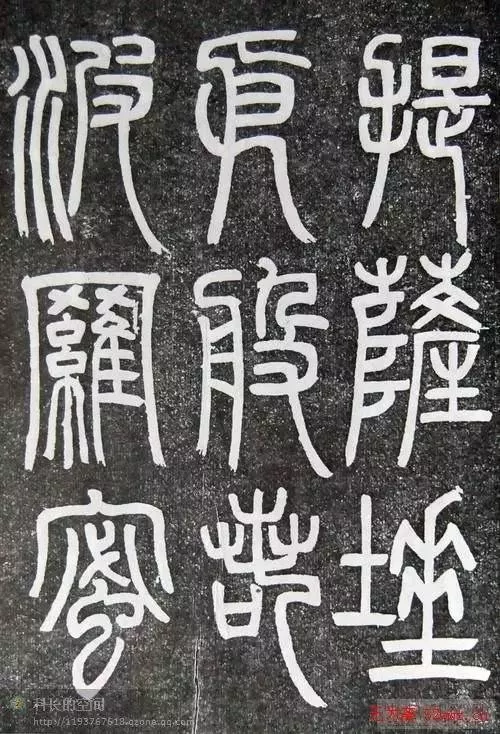 提薩埵
依般若
波羅蜜
科长的空间
http://1193767618.qzone.qq.com